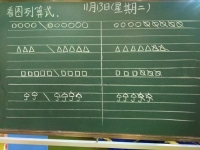 看图列算式。 11月13日(星期二)